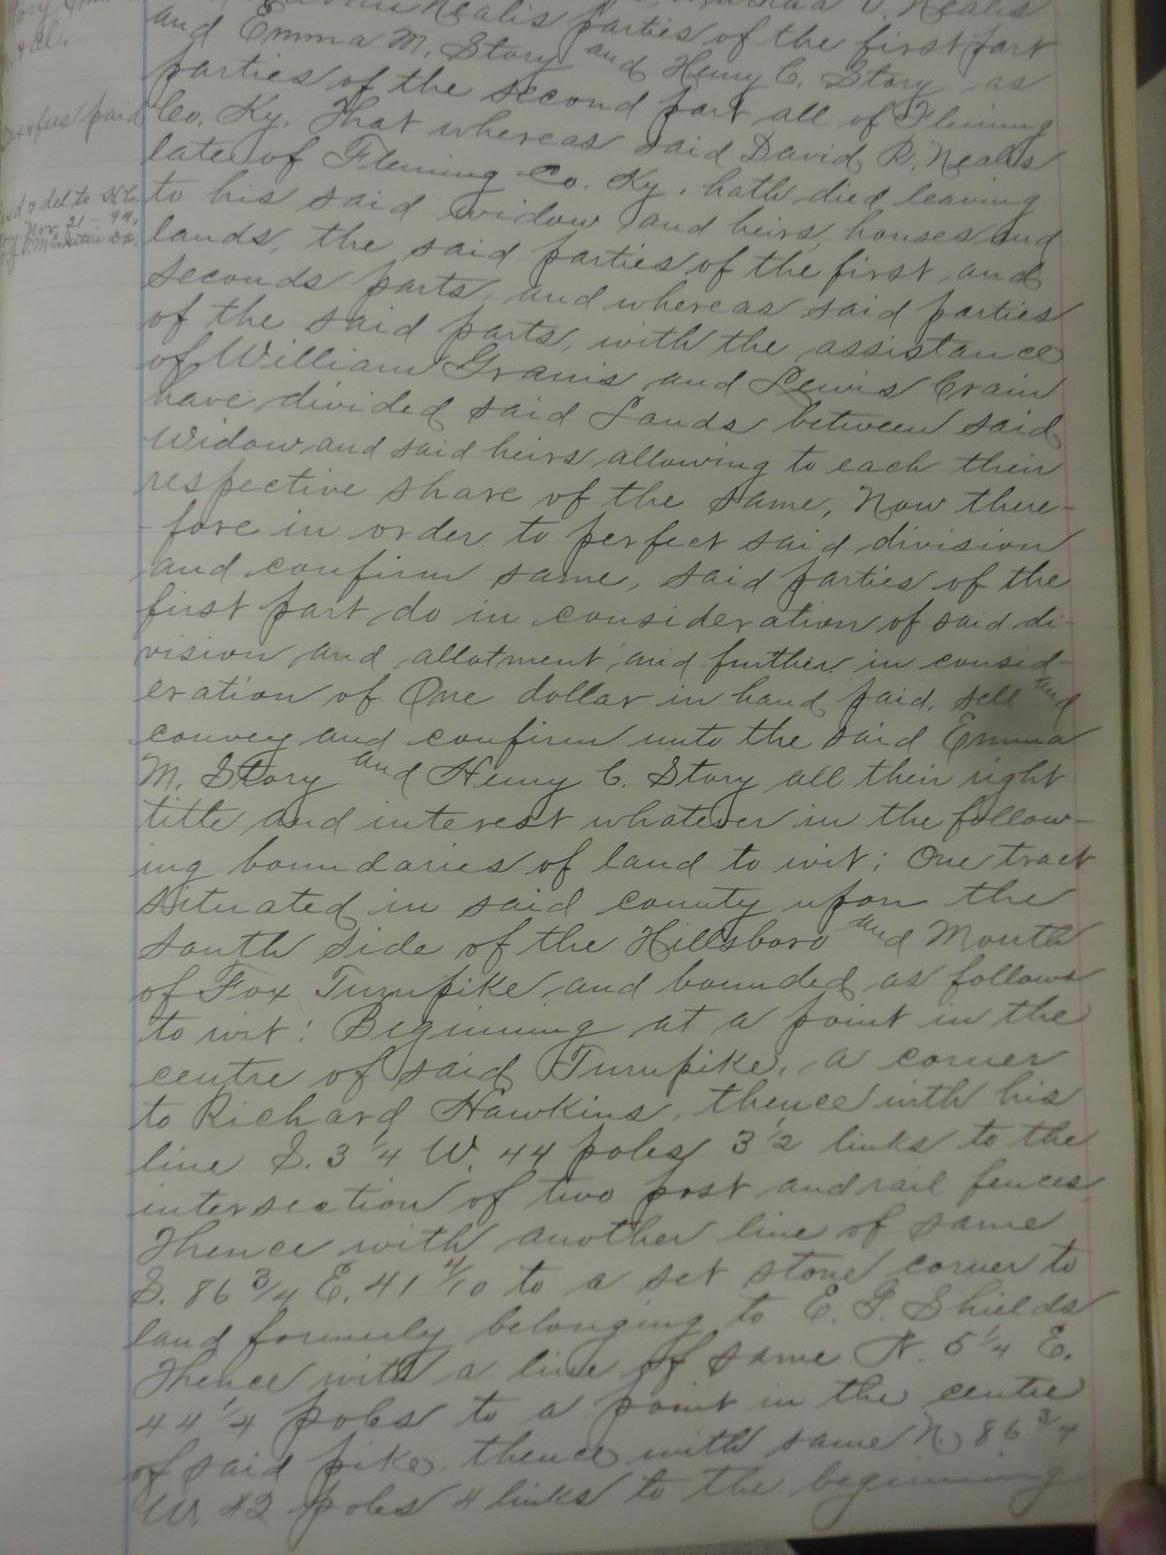 & al.
fees paid
del to H.C.
Nov. 21 - 99,
Nealis parties of the first part
and Emma M. Story and Henry C. Story as
parties of the second part all of Fleming
Co. Ky. That whereas said David R. Nealis
late of Fleming Co. Ky. hath died leaving
to his said widow and heirs, houses and
lands, the said parties of the first and
seconds parts, and whereas said parties
of the said parts, with the assistance
of William Grannis and Lewis Crain
have divided said Lands between said
Widow and said heirs allowing to each their
respective share of the same, Now there-
-fore in order to perfect said division
and confirm same, said parties of the
first part do in consideration of said di-
vision and allotment and further in consid-
eration of One dollar in hand paid, sell and
convey and confirm unto the said Emma
M. Story and Henry C. Story all their right
title and interest whatever in the follow-
ing boundaries of land to wit: One tract
situated in said county upon the
South side of the Hillsboro and Mouth
of Fox Turnpike and bounded as follows
to wit: Beginning at a point in the
centre of said Turnpike, a corner
to Richard Hawkins, thence with his
line S. 3 1/4 W. 44 poles 3 1/2 links to the
intersection of two post and rail fences,
Thence with another line of same
S. 86 3/4 E. 41 4/10 to a set stone corner to
land formerly belonging to E. G. Shields
Thence with a line of same N. 5 1/4 E.
44 1/4 poles to a point in the centre
of said pike, thence with same N 86 3/4
W. 42 poles 4 links to the beginning